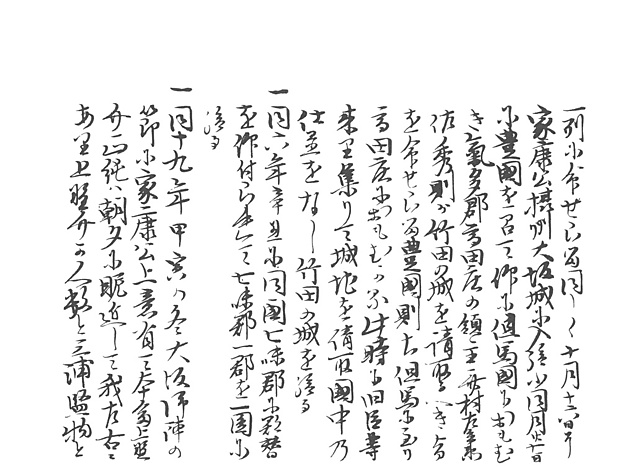 一列小命せらる同しく十月十六日
家康公摂州大坂城小入給小同月廿七日
小豊國を召て仰小但馬國小おゐ
き氣多郡高田庄の領主斎村左兵衛
佐秀則か竹田の城を請取へき旨
を命せらる豊國則ち但馬小至り
高田庄小おもむかる此時旧臣等
来里集りて城地を請取國中乃
仕置をなし竹田の城を給る
一同六年辛丑小同國七味郡小移替
を仰付られて七味郡一郡を一圓小
給る
一同十九年甲寅の冬大坂御陣の
節小家康公上意有て今度上野
介正純ハ朝夕小昵近して我左右に
あり上野介の人数と三浦監物と